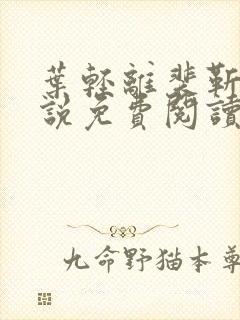 葉輕離裴靳
說免費閱讀
九命野猫本尊